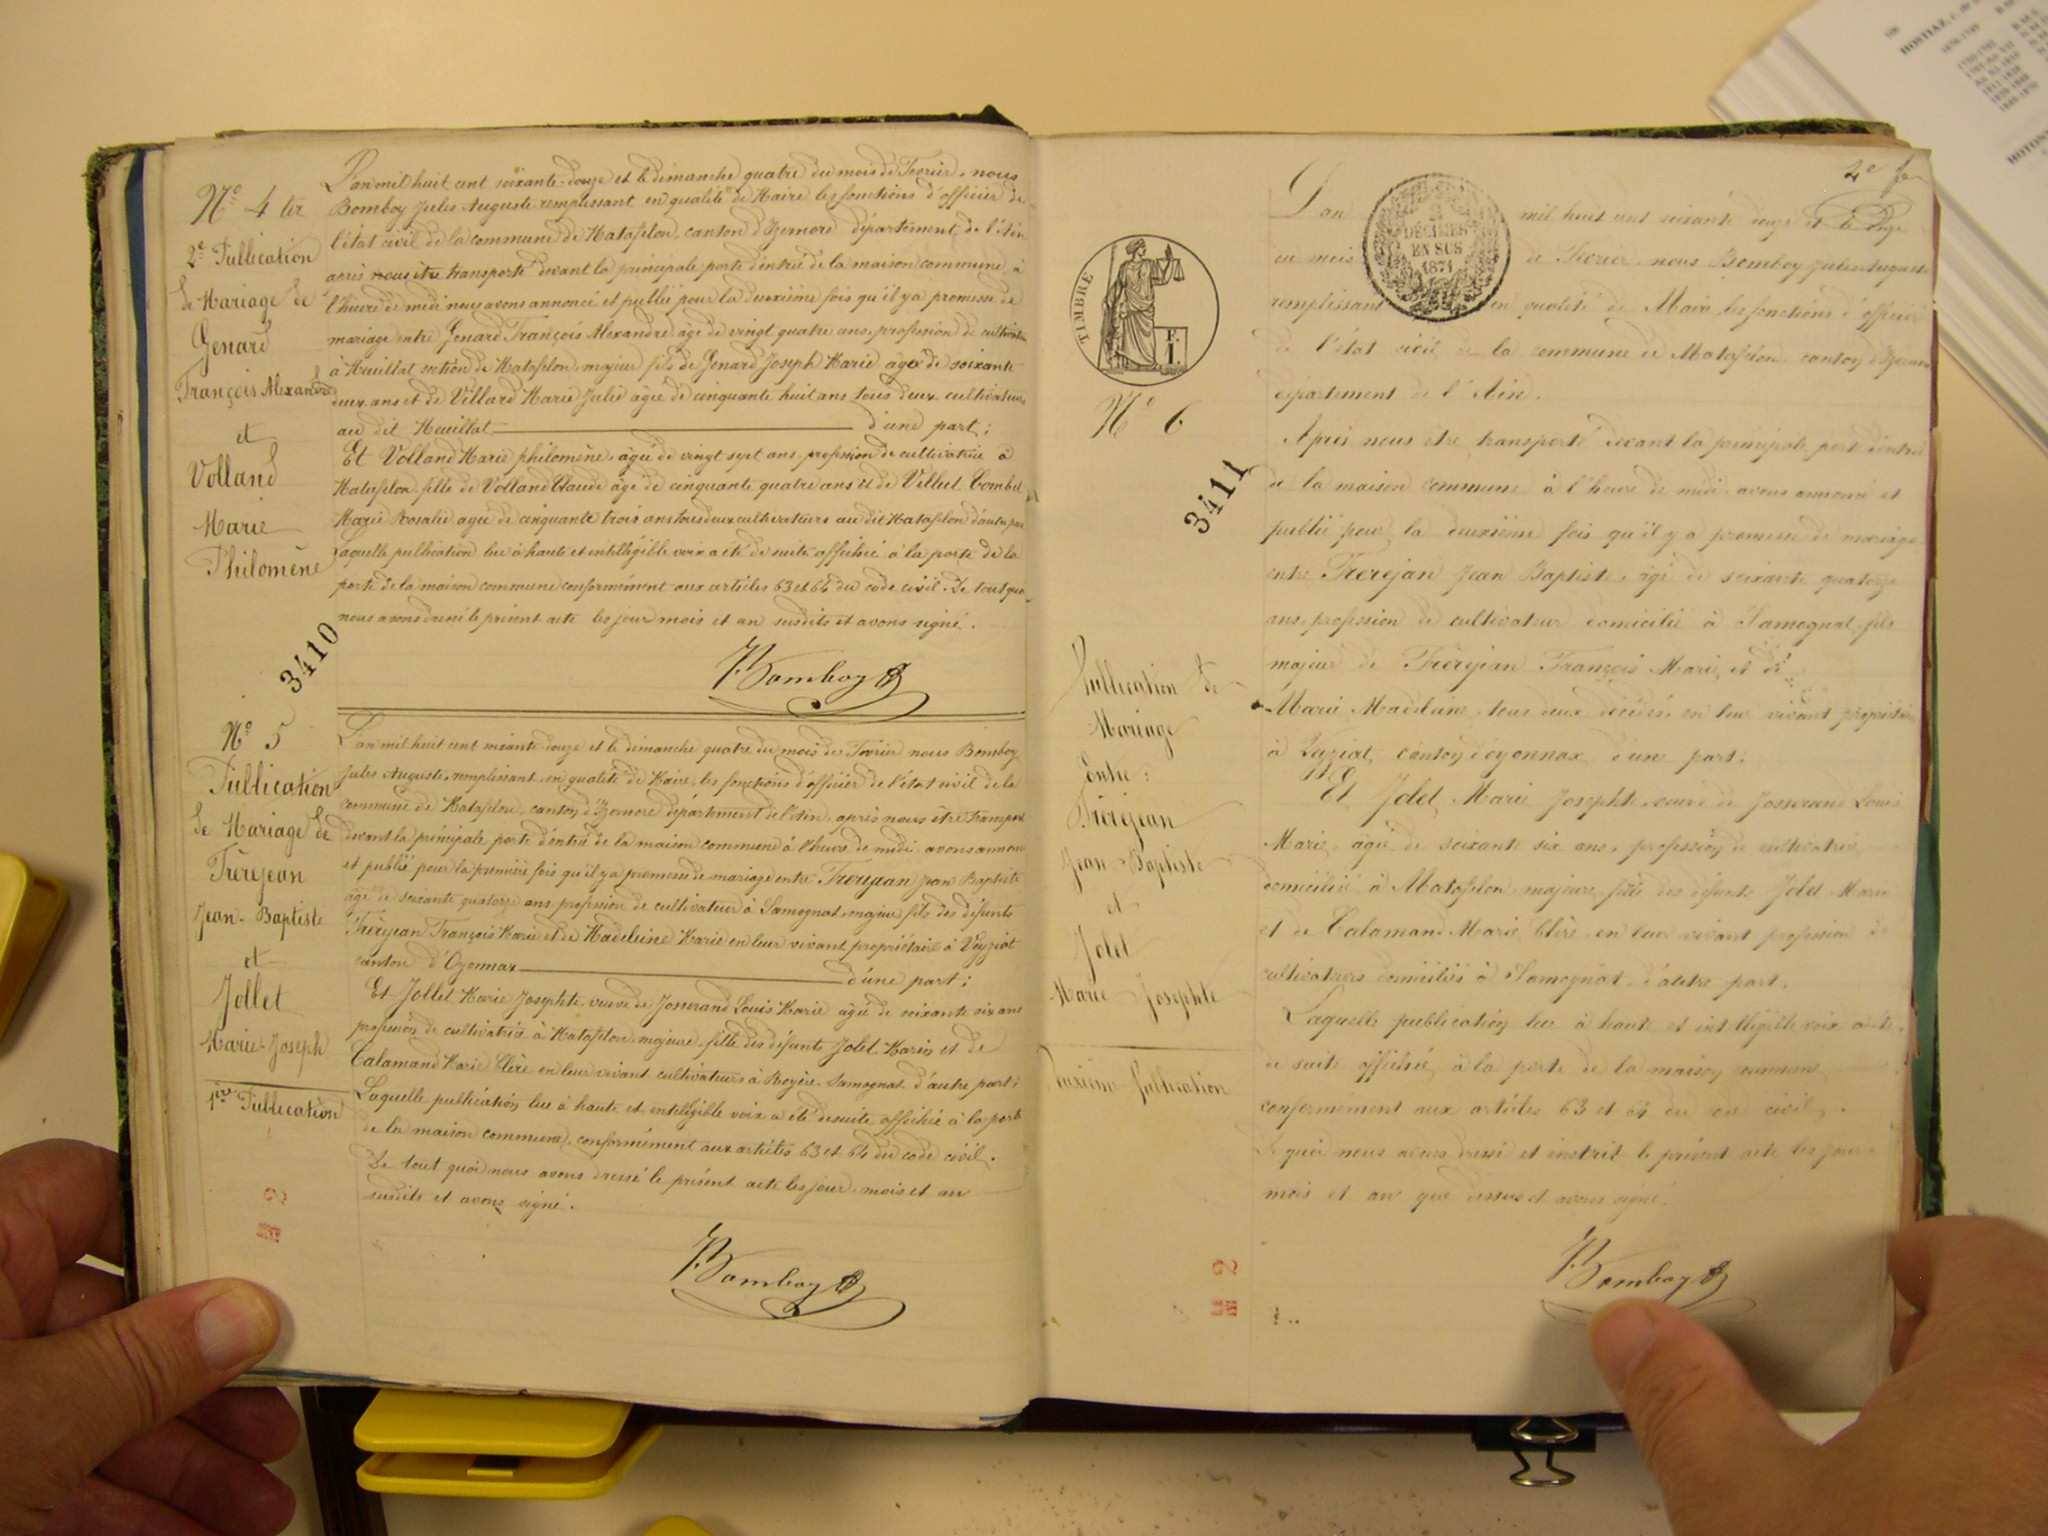 N° 4 ter
2e Publication
de Mariage de
Genard
François Alexandre
et
Volland
Marie
Philomène
3410
L'an mil huit cent soixante-douze et le dimanche quatre du mois de Fevrier, nous
Bomboy Jules Auguste remplissant en qualité de Maire les fonctions d'officier de
l'état civil de la commune de Matafelon, canton d'Izernore département de l'Ain
après nous être transporté devant la principale porte d'entrée de la maison commune à
l'heure de midi nous avons annoncé et publié pour la deuxième fois qu'il y a promesse de
mariage entre Genard François Alexandre âgé de vingt quatre ans, profession de cultivateur
à Heuillat section de Matafelon, majeur fils de Genard Joseph Marie âgé de soixante
deux ans et de Villard Marie Julie âgée de cinquante huit ans tous deux cultivateurs
au dit Heuillat d'une part;
Et Volland Marie philomène, âgée de vingt sept ans, profession de cultivatrice à
Matafelon, fille de Volland Claude âgé de cinquante quatre ans et de Villut Combet
Marie Rosalie agée de cinquante trois ans tous deux cultivateurs au dit Matafelon d'autre part
Laquelle publication lue à haute et intelligible voix a été de suite affichée à la porte de la
porte de la maison commune conformément aux articles 63 et 64 du code civil. De tout quoi
nous avons dressé le présent acte les jour mois et an susdits et avons signé.
Bomboy
N° 5
Publication
de Mariage de
Frèrejean
Jean-Baptiste
et
Jollet
Marie-Joseph
1ère Publication
L'an mil huit cent soixante douze et le dimanche quatre du mois de Fevrier nous Bomboy
Jules Auguste, remplissant en qualité de Maire, les fonctions d'officier de l'état civil de la
commune de Matafelon, canton d'Izernore département de l'Ain, après nous être transporté
devant la principale porte d'entrée de la maison commune à l'heure de midi avons annoncé
et publié pour la première fois qu'il y a promesse de mariage entre Frèrejean Jean Baptiste
âgé de soixante quatorze ans profession de cultivateur à Samognat, majeur fils des défunts
Frèrejean François Marie et de Madeleine Marie en leur vivant propriétaire à Veyziat
canton d'Oyonnax d'une part;
Et Jollet Marie Josephte veuve de Josserand Louis Marie âgée de soixante six ans
profession de cultivatrice à Matafelon, majeure, fille des défunts Jolet Marin et de
Calamand Marie Clère en leur vivant cultivateurs à Royère Samognat d'autre part;
Laquelle publication lue à haute et intelligible voix a été de suite affichée à la porte
de la maison commune, conformément aux articles 63 et 64 du code civil.
De tout quoi nous avons dressé le présent acte les jour, mois et an
susdits et avons signé.
Bomboy
2
TIMBRE
F.
I.
N° 6
3411
Publication de
Mariage
Entre:
Frèrejean
Jean-Baptiste
et
Jolet
Marie Josephte
Deuxième Publication
2
2 DÉCIMES
EN SUS
1871
L'an mil huit cent soixante douze et le onze
du mois de Fevrier, nous Bomboy Jules Auguste
remplissant en qualité de Maire les fonctions d'officier
de l'état civil de la commune de Matafelon canton d'Izernore
département de l'Ain.
Après nous être transporté devant la principale porte d'entrée
de la maison commune à l'heure de midi avons annoncé et
publié pour la deuxième fois qu'il y a promesse de mariage
entre Frèrejean Jean Baptiste, âgé de soixante quatorze
ans, profession de cultivateur domicilié à Samognat, fils
majeur de Frèrejean François Marie, et de
Marie Madeleine tous deux décédés en leur vivant propriétaire
à Veyziat, canton d'oyonnax d'une part;
Et Jolet Marie Josephte, veuve de Josserand Louis
Marie, âgée de soixante six ans, profession de cultivatrice
domiciliée à Matafelon, majeure, fille des défunts Jolet Marin
et de Calamand Marie Clère en leur vivant profession de
cultivateurs domiciliés à Samognat, d'autre part.
Laquelle publication lue à haute et intelligible voix a été
de suite affichée, à la porte de la maison commune
conformément aux articles 63 et 64 du code civil.
De quoi nous avons dressé et inscrit le présent acte les jour
mois et an que dessus et avons signé.
Bomboy